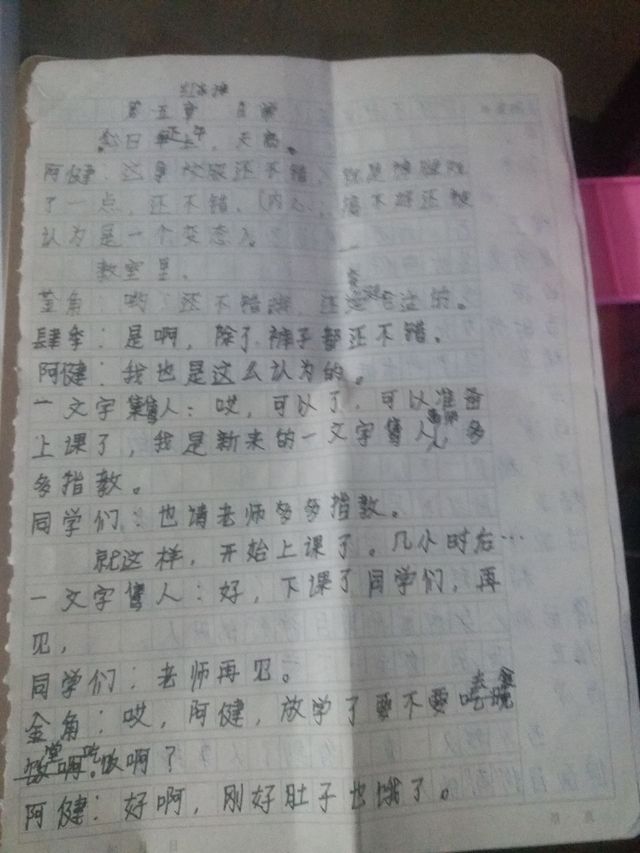 第五章
阿健：这身校服还不错，
了一点，还不错，（内心：
认为是一个变态）。
教室里。
金角：哟，还不错诶，还是 的。
肆季：是啊，除了裤子都还不错。
阿健：我也是这么认为的。
一文字售人：哎，可以了，可以准备
上课了，我是新来的一文字售人，多
多指教。
同学们：也请老师多多指教。
就这样，开始上课了。几小时后…
一文字售人：好，下课了同学们，再
见，
同学们：老师再见。
金角：哎，阿健，放学了要不要去食
堂吃饭啊？
阿健：好啊，刚好肚子也饿了。